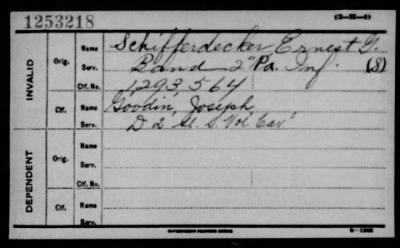 1253218
(3-22-4)
INVALID
Orig.
Name Schifferdecker Ernest G.
Serv. Band 2" Pa. Inf. (S)
Ctf. No. 1,293,564
Ctf.
Name Goodin, Joseph
Serv. D 2 U. S. Vol Cav
DEPENDENT
Orig.
Name
Serv.
Ctf. No.
Ctf.
Name
Serv.
GOVERNMENT PRINTING OFFICE